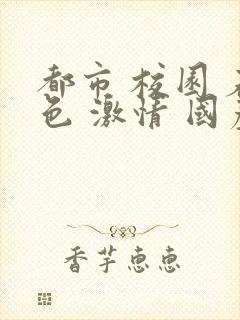 都市 校園
色 激情 國
香芋恵恵